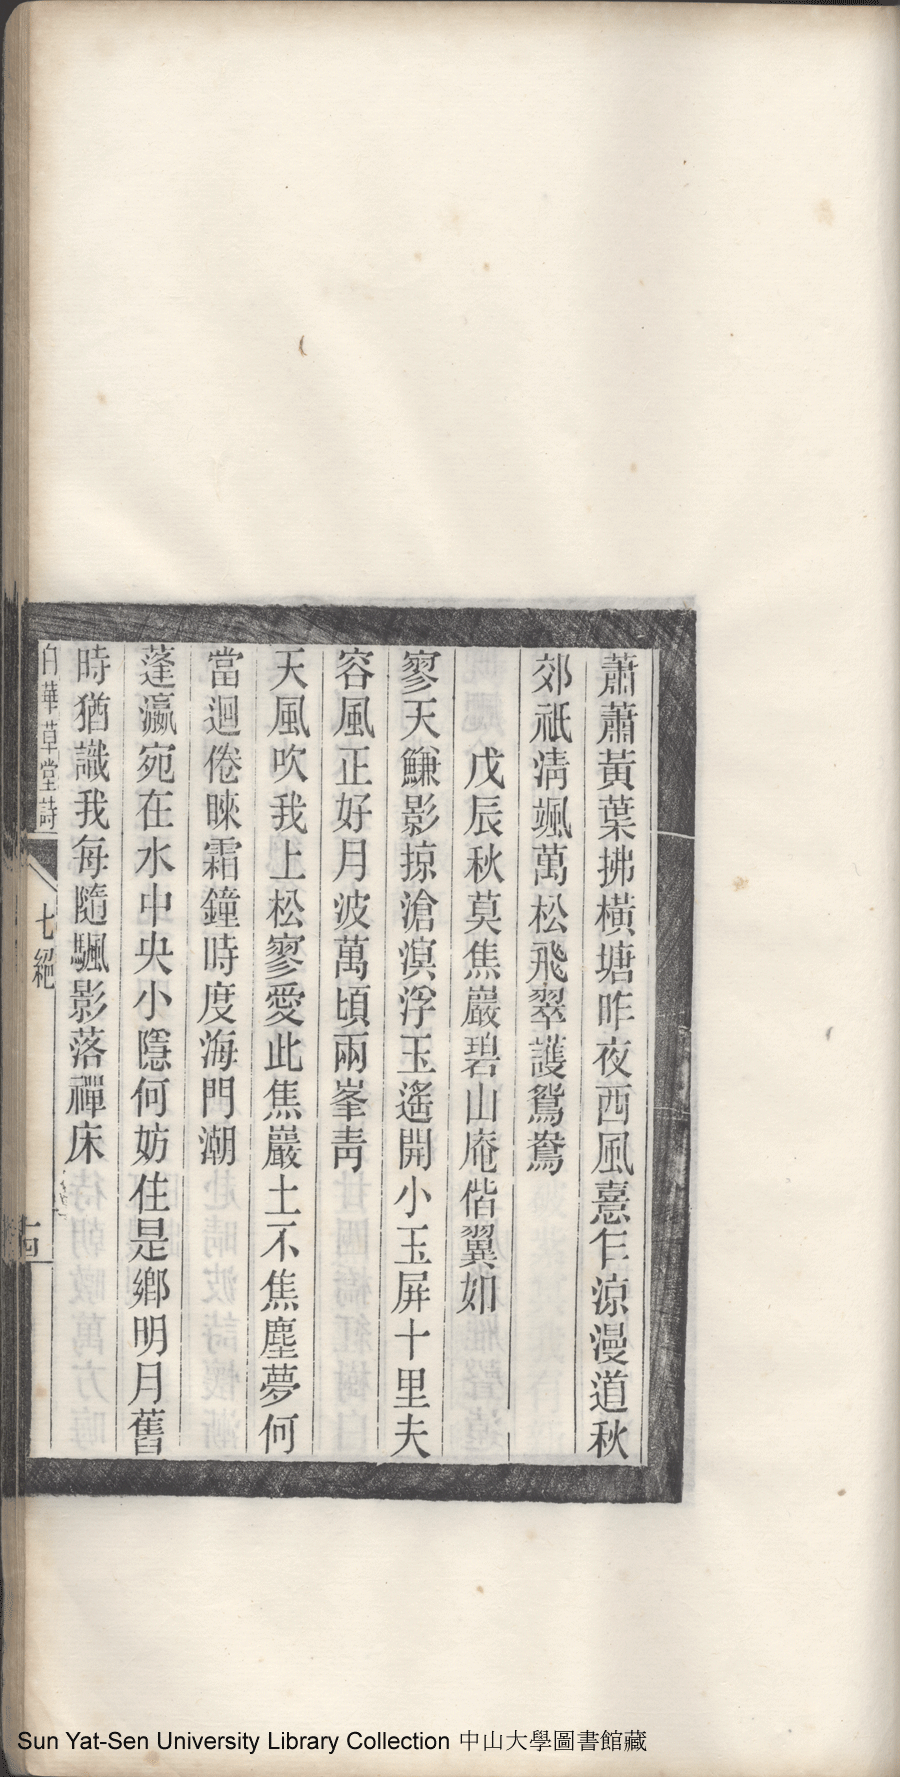 蕭蕭黃葉拂橫塘昨夜西風憙乍涼漫道秋
郊祇淸颯萬松飛翠護鴛鴦
戊辰秋莫焦巖碧山庵偕翼如
寥天鰜影掠滄溟浮玉遙開小玉屏十里夫
容風正好月波萬頃兩峯靑
天風吹我上松寥愛此焦巖土不焦塵夢何
當迴倦睞霜鐘時度海門潮
蓬瀛宛在水中央小隱何妨住是鄉明月舊
時猶識我每隨颿影落禪床
白華草堂詩
七絕
十四
Sun Yat-Sen University Library Collection 中山大學圖書館藏